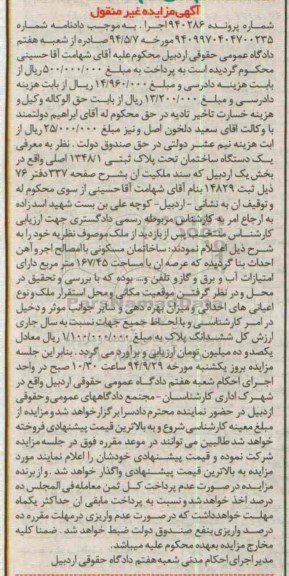 آگهی مزایده غیر منقول
شماره پرونده ۹۴۰۲۸۶ اجرا . به موجب دادنامه شماره
۹۴۰۹۹۷۰۴۰۴۷۰۰۲۳۵ مورخه ۹۴/۵/۷ صادره از شعبه هفتم
دادگاه عمومی حقوقی اردبیل محکوم علیه آقای شهامت آقا حسینی
محکوم گردیده است به پرداخت به مبلغ ۵۰۰/۰۰۰/۰۰۰ ریال از
بابت هزینه دادرسی و مبلغ ۱۴/۹۶۰/۰۰۰ ریال از بابت هزینه
دادرسی و مبلغ ۱۳/۲۰۰/۰۰۰ ریال از بابت حق الوکاله وکیل و
هزینه خسارت تاخیر تادیه در حق محکوم له آقای ابراهیم دولتمند
با وکالت اقای سعید دلخون اصل و نیز مبلغ ۲۵/۰۰۰/۰۰۰ ریال از
ابت هزینه نیم عشر دولتی در حق صندوق دولت . نظر به معرفی
یک دستگاه ساختمان تحت پلاک ثبتی ۱۳۴۸/۱ اصلی واقع در
بخش یک اردبیل که سند ملکیت ان بشرح صفحه ۳۳۷ دفتر ۷۶
ذیل ثبت ۱۴۸۲۹ بنام آقای شهامت آقا حسینی از سوی محکوم له
و توقیف ان به نشانی - اردبیل - کوچه علی بن بست شهید اسدزاده
به ارجاع امر به کارشناس مربوطه رسمی دادگستری جهت ارزیابی
کارشناس منتخب پس از بازدید از ملک موصوف نظریه خود را به
شرح ذیل اعلام نمودند: ساختمان مسکونی با مصالح اجر و آهن
احداث بنا گردیده که عرصه ان با مساحت ۱۶۷/۴۵ متر مربع دارای
امتیازات آب و برق و گاز و تلفن و... بوده که با بررسی و تحقیق در
محل و در نظر گرفتن موقعیت مکانی و محل استقرار ملک و نوع
اعیانی های احداثی و میزان بهره دهی و سایر جوانب موثر و دخیل
در امر کارشناسی و با لحاظ جمیع جهات نسبت به سال جاری
ارزش کل ششدانگ پلاک به مبلغ ۱/۱۰۰/۰۰۰/۰۰۰ ریال معادل
یکصد و ده میلیون تومان ارزیابی و براورد می گردد . بنابر این جلسه
مزایده بروز یکشنبه مورخه ۹۴/۹/۲۹ ساعت ۱۰/۳۰ صبح در واحد
اجرای احکام شعبه هفتم دادگاه عمومی حقوقی اردبیل واقع در
شهرک اداری کارشناسان - مجتمع دادگاههای عمومی و حقوقی
اردبیل در حضور نماینده محترم دادسرا برگزار خواهد شد و مزایده از
مبلغ معینه کارشناسی شروع و به بالاترین قیمت پیشنهادی فروخته
خواهد شد طالبین می توانند در موعد مقرره فوق در جلسه مزایده
شرکت نموده و قیمت پیشنهادی خودشان را اعلام نمایند مورد
مزایده به بالاترین قیمت پیشنهادی واگذار خواهد شد . و از برنده
مزایده در صورت عدم پرداخت کل ثمن معامله فی المجلس ده
درصد اخذ خواهد شد و نسبت به پرداخت مابقی ان حداکثر یکماه
مهلت خواهد داشت که در صورت عدم واریزی در مهلت مقرره ده
درصد واریزی بنفع صندوق دولت ضبط خواهد شد . ضمنا کلیه
مخارج مزایده بعهده محکوم علیه میباشد.
مدیر اجرای احکام مدنی شعبه هفتم دادگاه حقوقی اردبیل